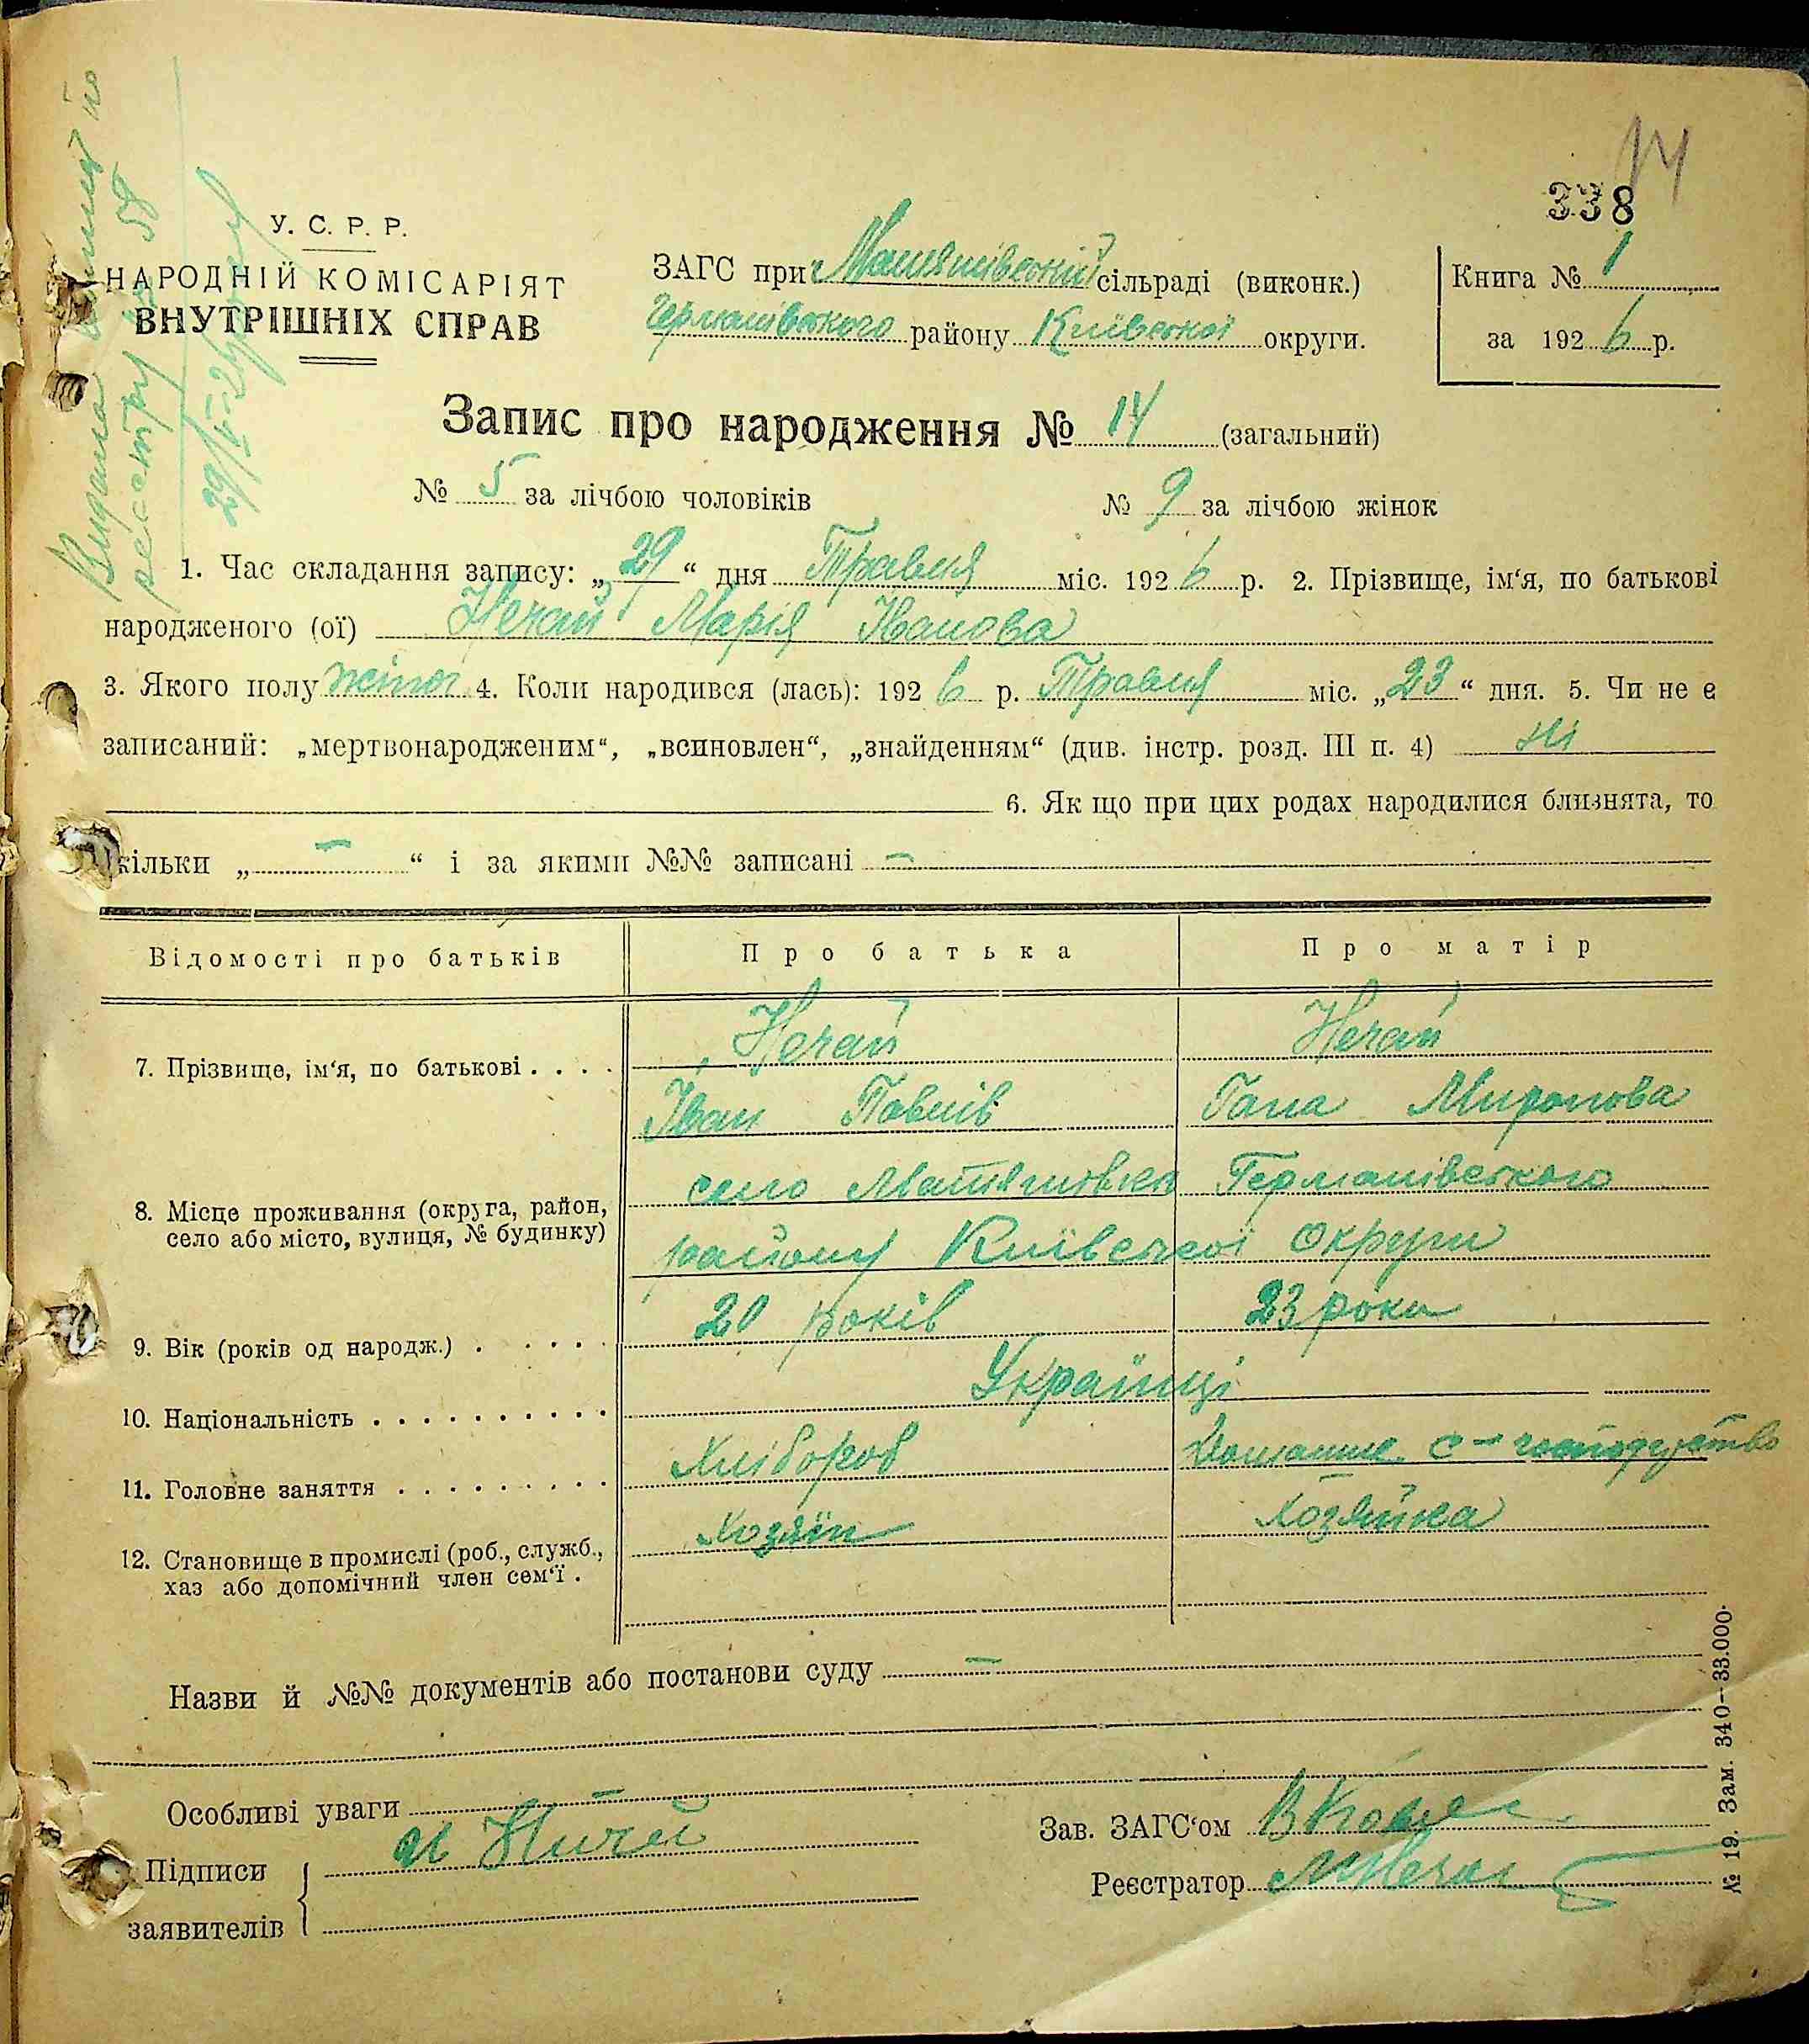 14
338
У. С. Р. Р.
НАРОДНІЙ КОМІСАРІЯТ
ВНУТРІШНІХ СПРАВ
ЗАГС при Матяшівській сільраді (виконк.)
Германівського району Київської округи.
Книга № 1
за 1926 р.
Видана по
реєстру 58
29/V-26
Запис про народження № 14 (загальний)
№ 5 за лічбою чоловіків № 9 за лічбою жінок
1. Час складання запису: „29“ дня Травня міс. 1926 р. 2. Прізвище, ім‘я, по батькові
народженого (ої) Нечай Марія Іванова
3. Якого полу жіноч 4. Коли народився (лась): 1926 р. Травня міс. „23“ дня. 5. Чи не є
записаний: „мертвонародженим“, „всиновлен“, „знайденням“ (див. інстр. розд. III п. 4) ні
6. Як що при цих родах народилися близнята, то
кільки „ — “ і за якими №№ записані —
Відомості про батьків Про батька Про матір
7. Прізвище, ім‘я, по батькові . . . . Нечай Нечай
Іван Павлів Гана Миронова
8. Місце проживання (округа, район,
село або місто, вулиця, № будинку)
село Матяшівка Германівського
району Київської Округи
9. Вік (років од народж.) . . . . . 20 років 23 роки
10. Національність . . . . . . . . . . Українці
11. Головне заняття . . . . . . . . . Хлібороб Домашнє с-господарство
12. Становище в промислі (роб., служб.,
хаз або допомічний член сем‘ї .
Хозяїн Хозяйка
Назви й №№ документів або постанови суду —
Особливі уваги —
Підписи
заявителів
Зав. ЗАГС‘ом
Реєстратор
№ 19. Зам. 340–33.000.